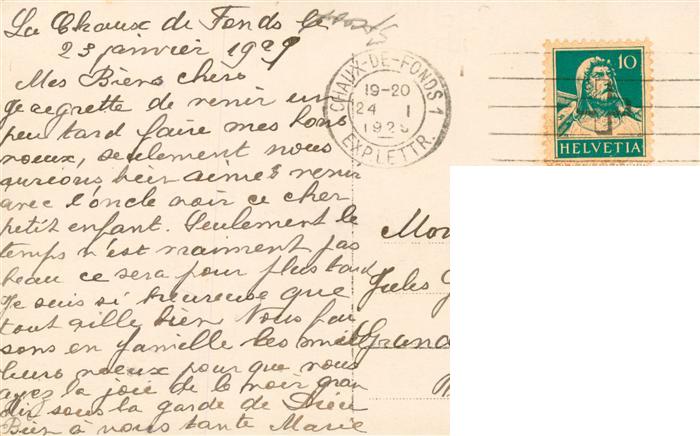 La Chaux de Fonds le
23 janvier 1929
Mes Biens chers
Je regrette de venir un
peu tard faire mes bons
voeux, seulement nous
aurions bien aimés venir
avec l'oncle voir ce cher
petit enfant. Seulement le
temps n'est vraiment pas
beau ce sera pour plus tard
Je suis si heureuse que
tout aille bien Nous fai
sons en famille les meil
leurs voeux pour que vous
ayez la joie de le voir gran
dir sous la garde de Dieu
Bien à vous tante Marie
CHAUX-DE-FONDS 1
19-20
24 I
192
EXP. LETTR.
10
HELVETIA
Mon
Jules G
Grand